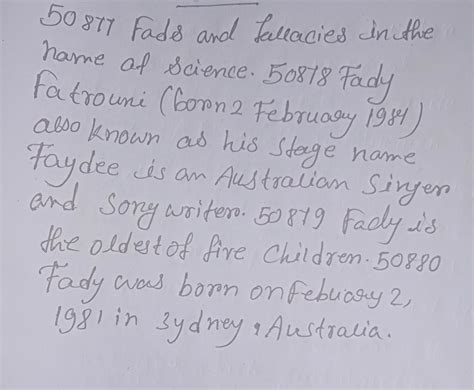 50877 Fads and Fallacies in the
name of Science. 50878 Fady
Fatrouni (born 2 February 1984)
also known as his stage name
Faydee is an Australian Singer
and Songwriter. 50879 Fady is
the oldest of five Children. 50880
Fady was born on Febuary 2,
1981 in Sydney, Australia.